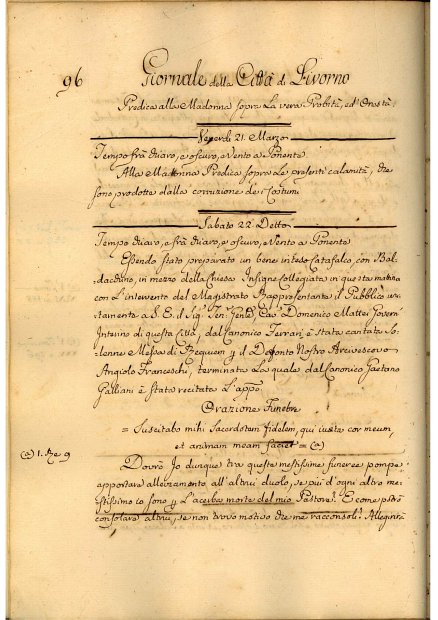 96 Giornale della Città di Livorno
Predica alla Madonna sopra La vera Probità, ed Onestà.
Venerdì 21. Marzo
Tempo frà chiaro, e oscuro, e Vento a Ponente
Alla Madonna Predica sopra Le presenti calamità, che
sono prodotte dalla corruzione de' Costumi
Sabato 22. Detto
Tempo chiaro, e frà chiaro, e oscuro, e Vento a Ponente
Essendo stato preparato un bene inteso Catafalco, con Bal-
dacchino, in mezzo della Chiesa Insigne Collegiata in questa matina
con L'intervento del Magistrato Rappresentante il Pubblico
tamente a S. E. il Sig.r Ten. Genle, Cav. Domenico Mattei Govern.
Interino di questa Città, dal Canonico Ferrari è stata cantata So-
lenne Messa di Requiem p il Defonto Nostro Arcivescovo
Angiolo Franceschi, terminata La quale dal Canonico Gaetano
Galbani è stata recitata L'appo.
Orazione Funebre
= Suscitabo mihi Sacerdotem fidelem, qui iuxta cor meum,
et animam meam faciet = (a)
(a) 1. Re 9
Dovrò Io dunque tra queste mestissime funeree pompe
apportare allevamento all'altrui duolo, se più d'ogni altro me-
stissimo io sono p L'acerba morte del mio Pastore? E come potrò
consolare altrui, se non trovo motivo che me racconsoli?